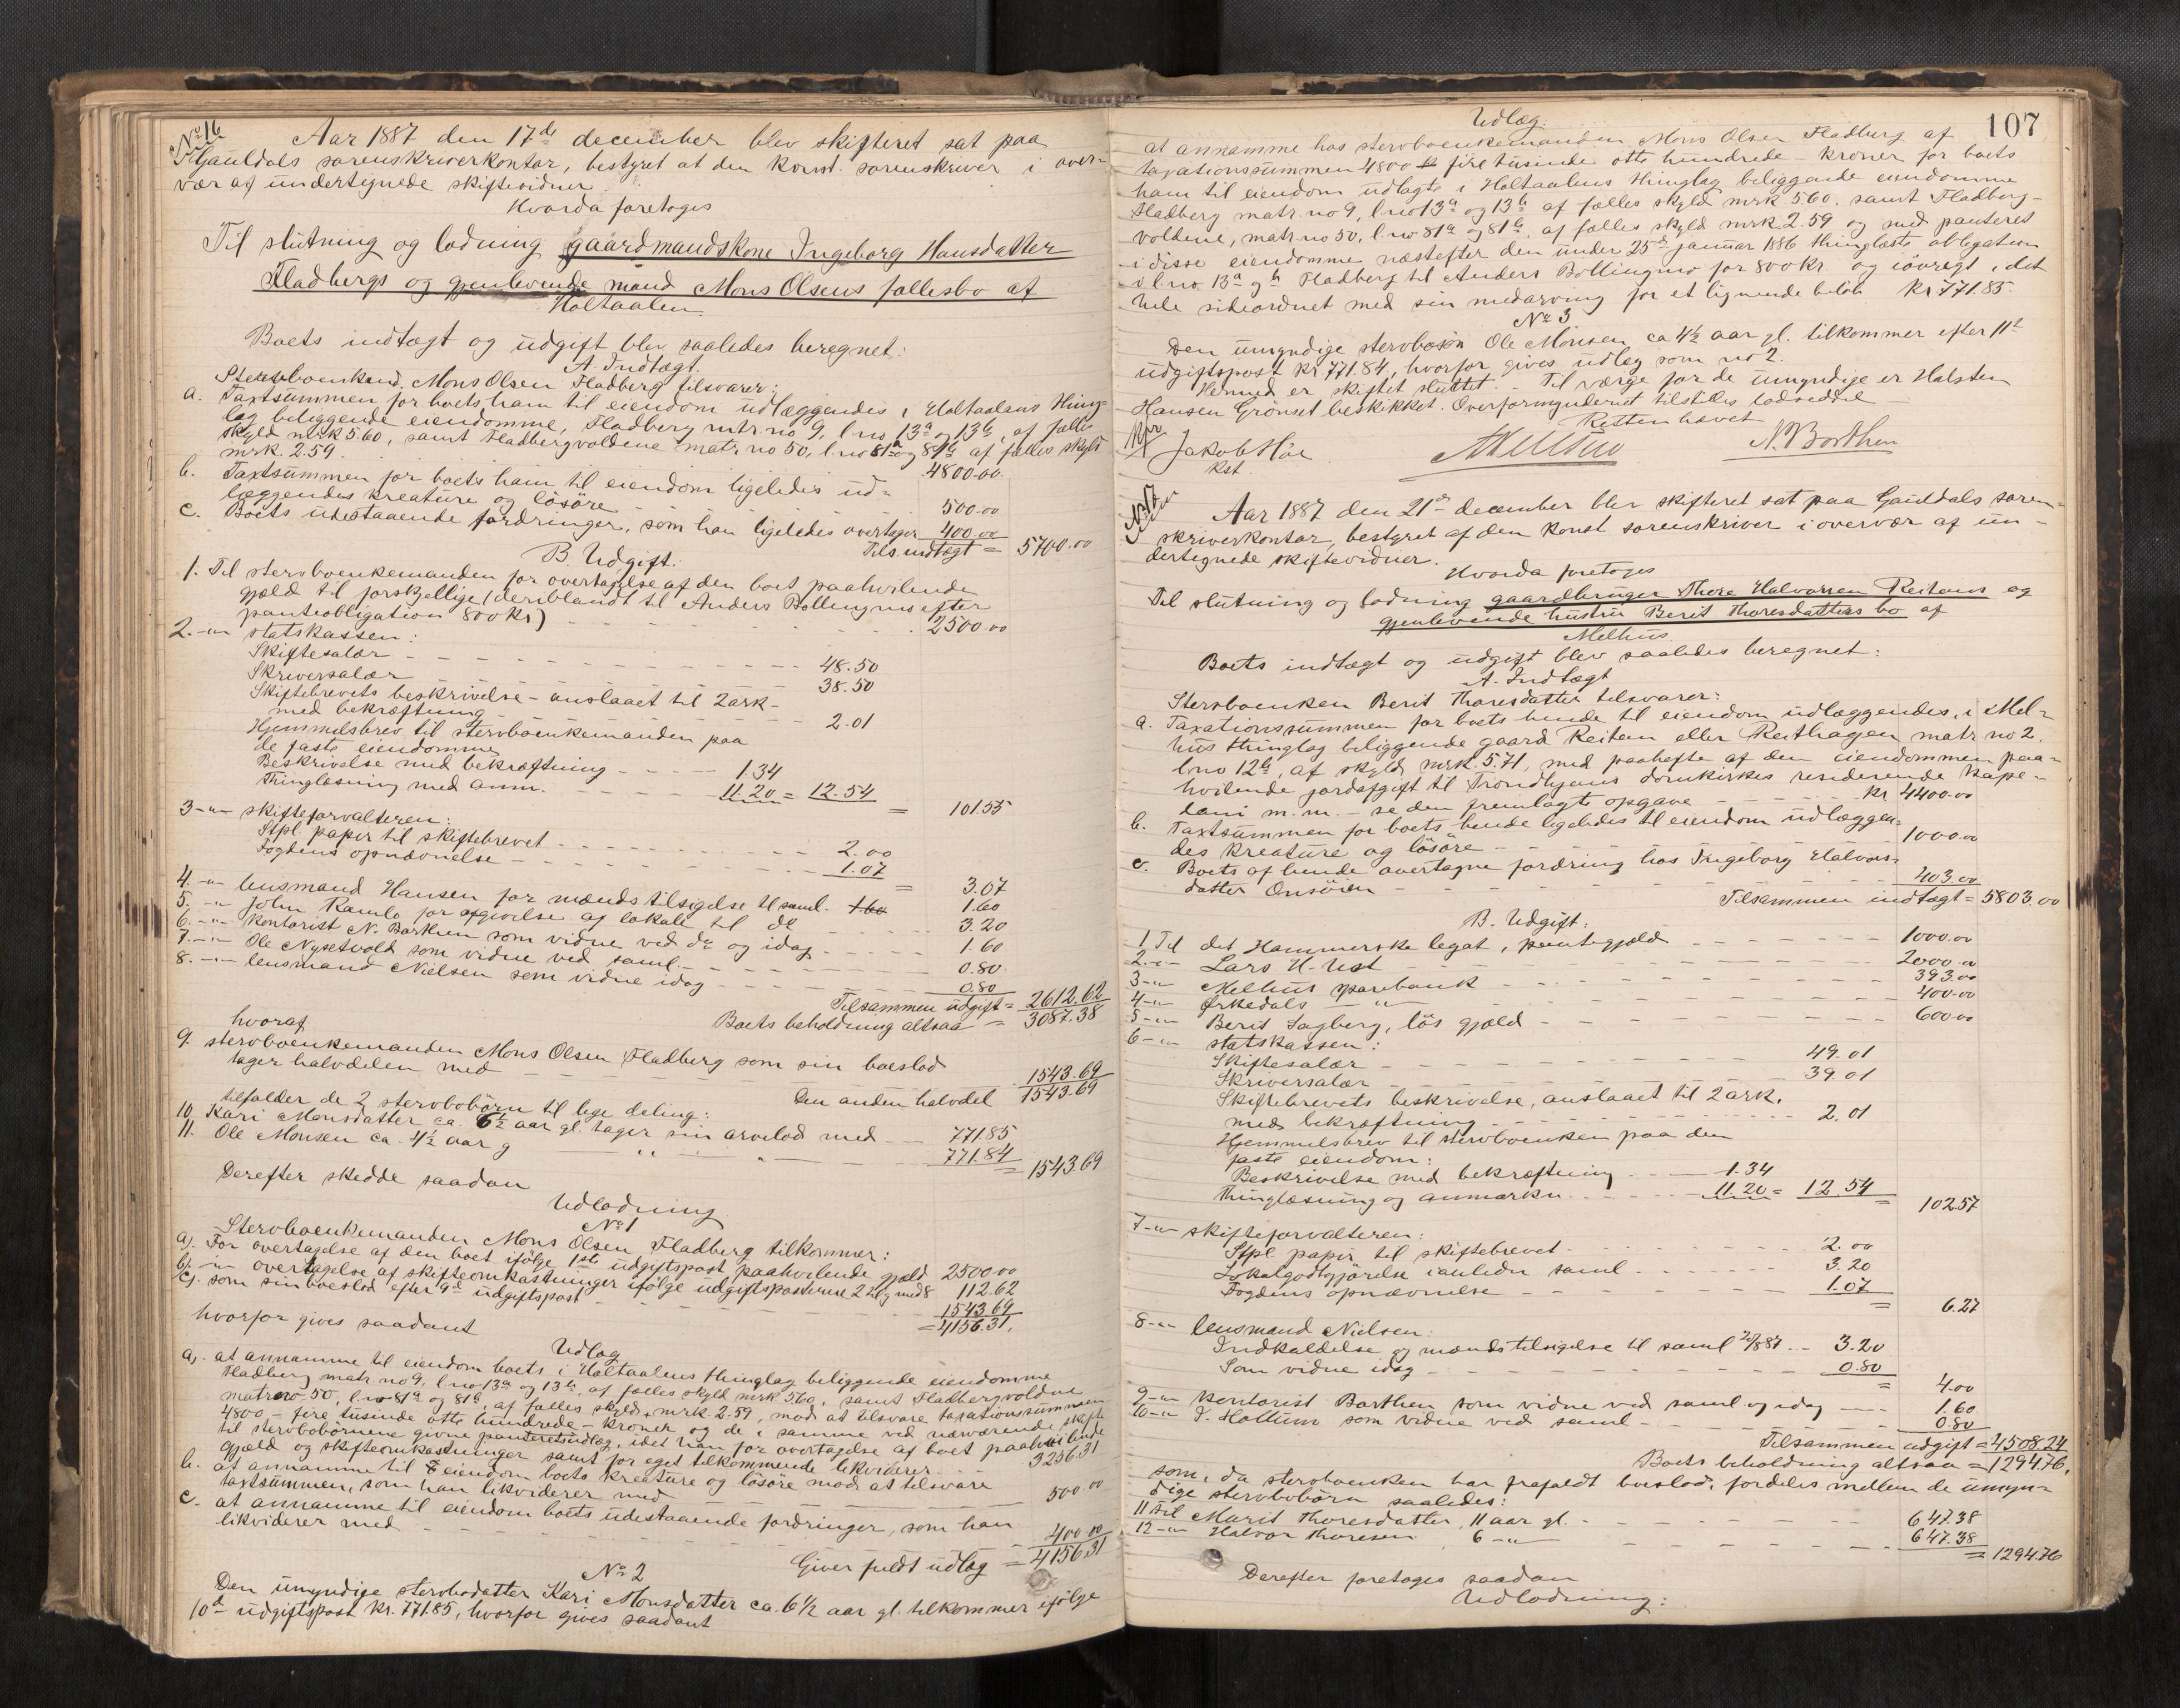 No 16
Aar 1887 den 17de december blev skifteret sat paa
Gauldals sorenskriverkontor, bestyret at den konst. sorenskriver i over-
vær af undertegnede skiftevidner.
Hvorda foretoges
Til slutning og lodning gaardmandskone Ingeborg Hansdatter
Fladbergs og gjenlevende mand Mons Olsens fællesbo af
Holtaalen
Boets indtægt og udgift blev saaledes beregnet:
A. Indtægt.
Stervboenkemd. Mons Olsen Fladberg tilsvarer:
a. Taxtsummen for boets ham til eiendom udlæggendes i Holtaalens thing-
lag beliggende eiendomme, Fladberg matr. no 9, l. no 13a og 13b, af fælles
skyld mrk 5.60, samt Fladbergvoldene matr. no 50, l. no 81a og 81b af fælles skyld
mrk. 2.59. 4800.00
b. Taxtsummen for boets ham til eiendom ligeledes ud-
læggendes kreature og lösöre 500.00
c. Boets udestaaende fordringer, som han ligeledes overtager 400.00
Tils. indtægt = 5700.00
B. Udgift.
1. Til stervboenkemanden for overtagelse af den boet paahvilende
gjæld til forskjellige (deriblandt til Anders Bollingmo efter
panteobligation 800 kr) 2500.00
2. -"- statskassen:
Skiftesalær 48.50
Skriversalær 38.50
Skiftebrevets beskrivelse - anslaaet til 2 ark -
med bekræftning 2.01
Hjemmelsbrev til stervboenkemanden paa
de faste eiendomme
Beskrivelse med bekræftning 1.34
Thinglæsning med anm. 11.20 = 12.54
= 101.55
3 -"- skifteforvalteren:
Stpl. papir til skiftebrevet 2.00
Fogdens opnævnelse 1.07
= 3.07
4. -"- lensmand Hansen for mænds tilsigelse til saml. 1.60 1.60
5. -"- John Ramlo for afgivelse af lokale til do 3.20
6. -"- Kontorist N. Borthen som vidne ved do og idag 1.60
7. -"- Ole Nysetvold som vidne ved saml. 0.80
8. -"- lensmand Nielsen som vidne idag 0.80
Tilsammen udgift = 2612.62
Boets beholdning altsaa = 3087.38
hvoraf
9. stervboenkemanden Mons Olsen Fladberg som sin boeslod
tager halvdelen med 1543.69
Den anden halvdel 1543.69
tilfalder de 2 stervbobörn til lige deling:
10. Kari Monsdatter ca. 6½ aar gl. tager sin arvelod med 771.85
11. Ole Monsen ca. 4½ aar g " " 771.84
= 1543.69
Derefter skedde saadan
Udlodning
No 1
Stervboenkemanden Mons Olsen Fladberg tilkommer:
a). For overtagelse af den boet ifölge 1ste udgiftspost paahvilende gjæld 2500.00
b). -"- overtagelse af skifteomkostninger ifölge udgiftsposterne 2 til og med 8 112.62
c). som sin boeslod efter 9de udgiftspost 1543.69
= 4156.31.
hvorfor gives saadant
Udlæg
a). at annamme til eiendom boets i Holtaalens thinglag beliggende eiendomme
Fladberg matr. no 9, l. no 13a og 13b, af fælles skyld mrk 5.60, samt Fladbergvoldne
matr no 50, l. no 81a og 81b, af fælles skyld mrk. 2.59, mod at tilsvare taxationssummen
4800 - fire tusinde otte hundrede - kroner og de i samme ved nærværende skifte
til stervbobörnene givne panteretsudlæg, idet han for overtagelse af boet paahvilende
gjæld og skifteomkostninger samt for eget tilkommende likviderer 3256.31
b. at annamme til eiendom boets kreature og lösöre mod at tilsvare
taxtsummen, som han likviderer med 500.00
c. at annamme til eiendom boets udestaaende fordringer, som han
likviderer med 400.00
Giver fuldt udlæg = 4156.31
No 2
Den umyndige stervbodatter Kari Monsdatter ca. 6 1/2 aar gl. tilkommer ifölge
10de udgiftspost kr. 771.85, hvorfor gives saadant
107
Udlæg.
at annamme hos stervboenkemanden Mons Olsen Fladberg af
taxationssummen 4800 fire tusinde otte hundrede - kroner for boets
ham til eiendom udlagte i Holtaalens thinglag beliggende eiendomme
Fladberg matr. no 9, l. no 13a og 13b af fælles skyld mrk 5.60. samt Fladberg-
voldene, matr. no 50, l. no 81a og 81b, af fælles skyld mrk. 2.59 og med panteret
i disse eiendomme næstefter den under 25de januar 1886 thinglæste obligation
i l. no. 13a og b Fladberg til Anders Bollingmo for 800 kr og iövrigt i det
hele sideordnet med sin medarving for et lignende belöb kr 771.85.
No 3
Den umyndige stervbosön Ole Monsen ca 4½ aar gl. tilkommer efter 11te
udgiftspost kr. 771.84, hvorfor gives udlæg som no 2.
Hermed er skiftet sluttet. - Til værge for de umyndige er Halsten
Hansen Grönset beskikket. Overformynderiet tilstilles lodseddel
Retten hævet
Jakob Höe N. Borthen
kst.
No 17
Aar 1887 den 21de december blev skifteret sat paa Gauldals soren-
skriverkontor, bestyret af den konst sorenskriver i overvær af un-
dertegnede skiftevidner.
Hvorda foretoges
Til slutning og lodning gaardbruger Thore Halvorsen Reitans og
gjenlevende hustru Berit Thoresdatters bo af
Melhus.
Boets indtægt og udgift blev saaledes beregnet:
A. Indtægt
Stervboenken Berit Thoresdatter tilsvarer:
a. Taxationssummen for boets hende til eiendom udlæggendes, i Mel-
hus thinglag beliggende gaard Reitan eller Reithagen matr. no 2.
l. no 12b, af skyld mrk. 5.71, med paahefte af den eiendommen paa-
hvilende jordafgift til Trondhjems domkirkes residerende kape-
lani m.m. - se den fremlagte opgave kr 4400.00
b. Taxtsummen for boets hende ligeledes til eiendom udlæggen-
des kreature og lösöre 1000.00
c. Boets af hende overtagne fordring hos Ingeborg Halvors-
datter Onsöien 403.00
Tilsammen indtægt = 5803.00
B. Udgift:
1 Til det Hammerske legat, pantegjæld 1000.00
2. -"- Lars H. Ust 2000.00
3 -"- Melhus sparebank 393.00
4 -"- Ørkedals -"- 400.00
5 -"- Berit Sagberg, lös gjæld 600.00
6 -"- statskassen:
Skiftesalær 49.01
Skriversalær 39.01
Skiftebrevets beskrivelse, anslaaet til 2 ark.
med bekræftning 2.01
Hjemmelsbrev til stervboenken paa den
faste eiendom:
Beskrivelse med bekræftning 1.34
Thinglæsning og anmærkn. 11.20 = 12.54
= 102.57
7 -"- skifteforvalteren:
Stpl. papir til skiftebrevet 2.00
Lokalgodtgjörelse i anledn. saml. 3.20
Fogdens opnævnelse 1.07
= 6.27
8 -"- lensmand Nielsen:
Indkaldelse og mænds tilsigelse til saml 3.20
Som vidne idag 0.80
= 4.00
9 -"- Kontorist Borthen som vidne ved saml og idag 1.60
10 -"- Hollum som vidne ved saml 0.80
Tilsammen udgift = 4508.24
Boets beholdning altsaa = 1294.76,
som, da stervboenken har frafaldt boeslod, fordeles mellem de umyn-
dige stervbobörn saaledes:
11 Til Marit Thoresdatter, 11 aar gl. 647.38
12 -"- Halvor Thoresen 6 -"- 647.38
= 1294.76
Derefter foretoges saadan
Udlodning: